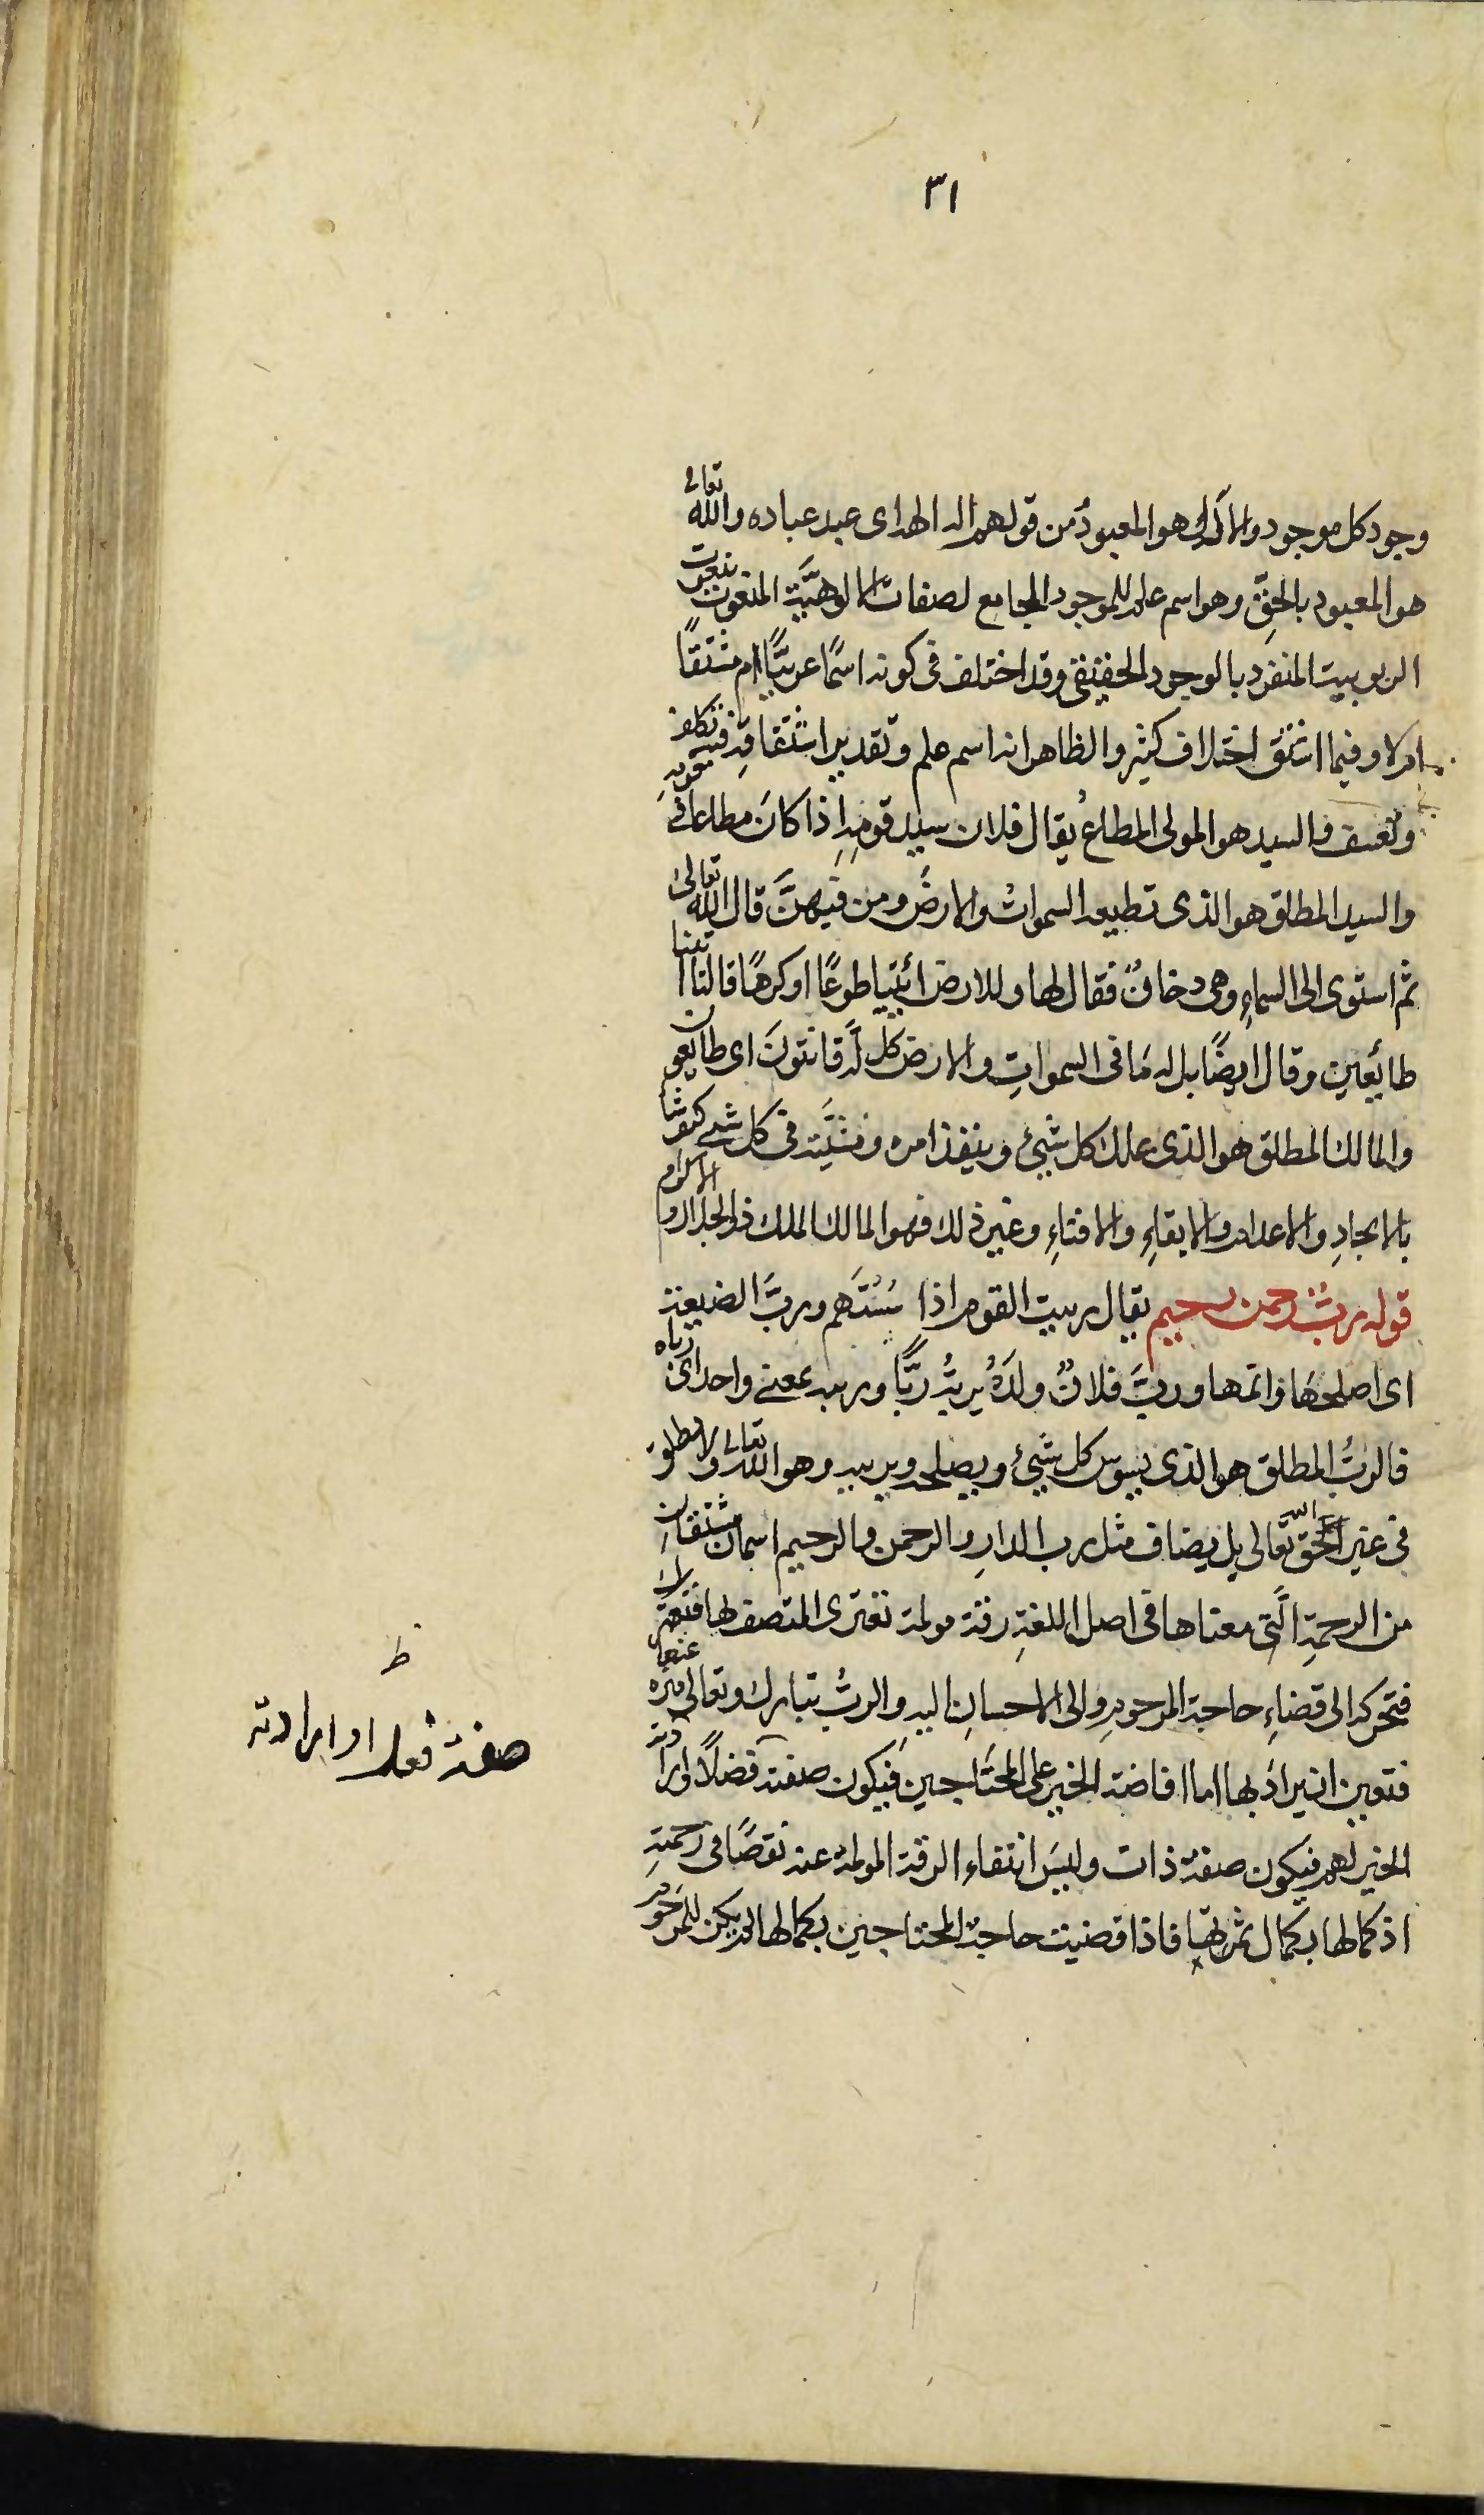 ٣١
وجود كل موجود والاله هو المعبودُ من قولهم اله الهة اى عبد عباده والله تعالى
هو المعبود بالحقِّ وهو اسم علم للموجود الجامع لصفات الالوهيَّة المنعوت بنعوت
الربوبيت المنفرد بالوجود الحقيقى وقد اختلف فى كونه اسمًا عربيًّا ام مشتقًا
ام لا وفيما اشتق اختلاف كثير والظاهر انه اسم علم وتقدير اشتقاقه فيه تكلف
وتعسف والسيد هو المولى المطاعُ يقال فلان سيد قومِهِ اِذا كانَ مطاعا فى قومِهِ
والسيد المطلق هو الذى تطيعه السمواتُ والارضُ ومن فيهنَّ قال الله تعالى
ثم استوى الى السماءِ وهى دخانٌ فقال لها وللارض ائتيا طوعًا او كرهًا قالتا اتينا
طائعين وقال ايضًا بل له مَا فى السمواتِ والارض كل لَّه قانتونَ اى طايعون
والمالك المطلق هو الذى يملك كل شيئ وينفذ امره ومشيَّته فى كل شيئ كيف شا
بالايجادِ والاعدام والابقاءِ والافناءِ وغير ذلك فهو المالك الملك ذو الجلال والاكرام
قوله ربٌّ رحمن رحيم يقال ربيت القوم اذا سُسْتَهم وربَّ الضيعة
اى اصلحهَا واتمها وربَّ فلانٌ ولدَهُ يربُّه ربًّا وربيه بمعنى واحد اى رباه
فالربُّ المطلق هو الذى يسوس كل شيئ ويصلحه ويربيه وهو الله تعالى ولا يطلق
فى غير الحق الله تعالى بل يضاف مثل رب الدارِ والرحمن والرحيم اسمان مشتقان
من الرحمةِ الَّتى معناها فى اصل اللغةِ رقة مولمة تعترى المتصف بها
فتحركه الى قضاءِ حاجة المرحومِ والى الاحسانِ اليهِ والربُّ تبارك وتعالى منزه عنها
فتعين ان يرادَ بها اما افاضة الخير على المحتَاجين فيكون صفته فضلاً وارادته
الخير لهم فيكون صفة ذات وليسَ انتفاء الرقة المولمة عنه نقصًا فى رحمتِهِ
اذ كمالها بكمال ثمرتها فاذا قضيت حاجة المحتاجين بكمالها لم يكن للمرحوم
ظ
صفة فعل او ارادته